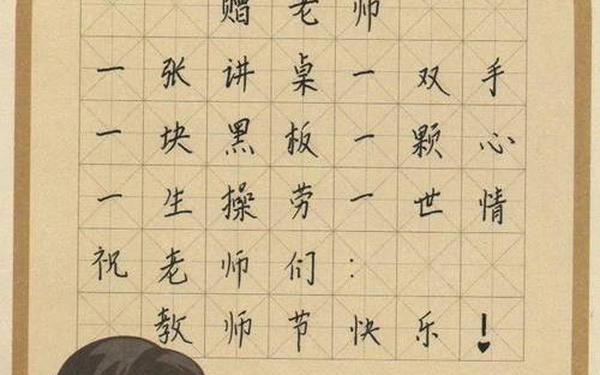 赠老师
一张讲桌一双手
一块黑板一颗心
一生操劳一世情
祝老师们：
教师节快乐！